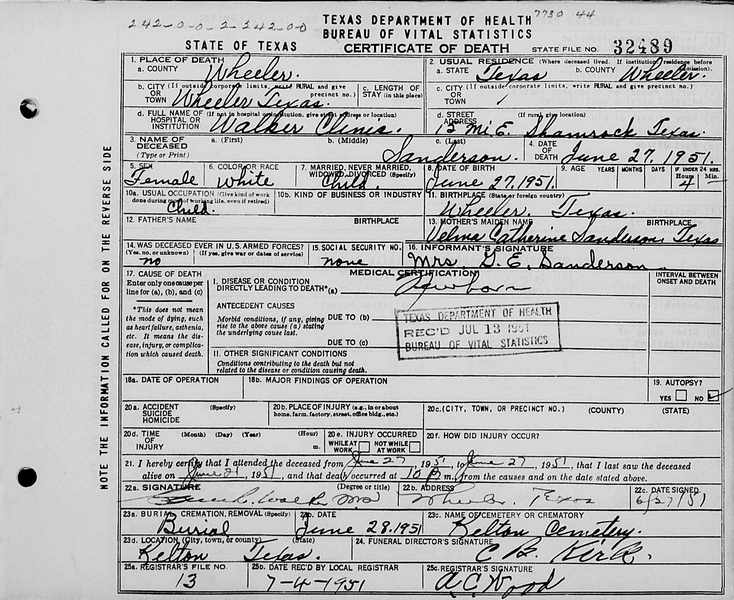 242-0-0-2-242-0-0
7730 44
TEXAS DEPARTMENT OF HEALTH
BUREAU OF VITAL STATISTICS
STATE OF TEXAS CERTIFICATE OF DEATH STATE FILE NO. 32489
1. PLACE OF DEATH 2. USUAL RESIDENCE (Where deceased lived. If institution: residence before admission).
a. COUNTY Wheeler. a. STATE Texas b. COUNTY Wheeler.
b. CITY (If outside corporate limits, write RURAL and give precinct no.) OR TOWN Wheeler Texas. c. LENGTH OF STAY (in this place) c. CITY (If outside corporate limits, write RURAL and give precinct no.) OR TOWN
d. FULL NAME OF (If not in hospital or institution, give street address or location) HOSPITAL OR INSTITUTION Walker Clinic. d. STREET ADDRESS (If rural, give location) 15 Mi E. Shamrock Texas.
3. NAME OF DECEASED (Type or Print) a. (First) b. (Middle) c. (Last) Sanderson. 4. DATE OF DEATH June 27, 1951.
5. SEX Female 6. COLOR OR RACE White 7. MARRIED, NEVER MARRIED, WIDOWED, DIVORCED (Specify) Child. 8. DATE OF BIRTH June 27, 1951. 9. AGE YEARS MONTHS DAYS IF UNDER 24 HRS. Hours 4 Min.
10a. USUAL OCCUPATION (Give kind of work done during most of working life, even if retired) Child. 10b. KIND OF BUSINESS OR INDUSTRY 11. BIRTHPLACE (State or foreign country) Wheeler, Texas.
12. FATHER'S NAME BIRTHPLACE 13. MOTHER'S MAIDEN NAME BIRTHPLACE Velma Catherine Sanderson, Texas
14. WAS DECEASED EVER IN U.S. ARMED FORCES? (Yes, no, or unknown) (If yes, give war or dates of service) no 15. SOCIAL SECURITY NO. none 16. INFORMANT'S SIGNATURE Mrs G. E. Sanderson
17. CAUSE OF DEATH MEDICAL CERTIFICATION INTERVAL BETWEEN ONSET AND DEATH
Enter only one cause per line for (a), (b), and (c) I. DISEASE OR CONDITION DIRECTLY LEADING TO DEATH*(a) Newborn
*This does not mean the mode of dying, such as heart failure, asthenia, etc. It means the disease, injury, or complication which caused death.
ANTECEDENT CAUSES
Morbid conditions, if any, giving rise to the above cause (a) stating the underlying cause last. DUE TO (b)
DUE TO (c)
TEXAS DEPARTMENT OF HEALTH
REC'D JUL 13 1951
BUREAU OF VITAL STATISTICS
II. OTHER SIGNIFICANT CONDITIONS
Conditions contributing to the death but not related to the disease or condition causing death.
18a. DATE OF OPERATION 18b. MAJOR FINDINGS OF OPERATION 19. AUTOPSY? YES NO
20a. ACCIDENT SUICIDE HOMICIDE (Specify) 20b. PLACE OF INJURY (e.g., in or about home, farm, factory, street, office bldg., etc.) 20c. (CITY, TOWN, OR PRECINCT NO.) (COUNTY) (STATE)
20d. TIME OF INJURY (Month) (Day) (Year) (Hour) m. 20e. INJURY OCCURRED WHILE AT WORK NOT WHILE AT WORK 20f. HOW DID INJURY OCCUR?
21. I hereby certify that I attended the deceased from June 27 1951, to June 27, 1951, that I last saw the deceased
alive on June 27, 1951, and that death occurred at 10 P m., from the causes and on the date stated above.
22a. SIGNATURE (Degree or title) Walker MD 22b. ADDRESS Wheeler, Texas 22c. DATE SIGNED 6/27/51
23a. BURIAL, CREMATION, REMOVAL (Specify) Burial 23b. DATE June 28, 1951 23c. NAME OF CEMETERY OR CREMATORY Kelton Cemetery.
23d. LOCATION (City, town, or county) (State) Kelton Texas. 24. FUNERAL DIRECTOR'S SIGNATURE C B. Kirk.
25a. REGISTRAR'S FILE NO. 13 25b. DATE REC'D BY LOCAL REGISTRAR 7-4-1951 25c. REGISTRAR'S SIGNATURE A. C. Wood
NOTE THE INFORMATION CALLED FOR ON THE REVERSE SIDE